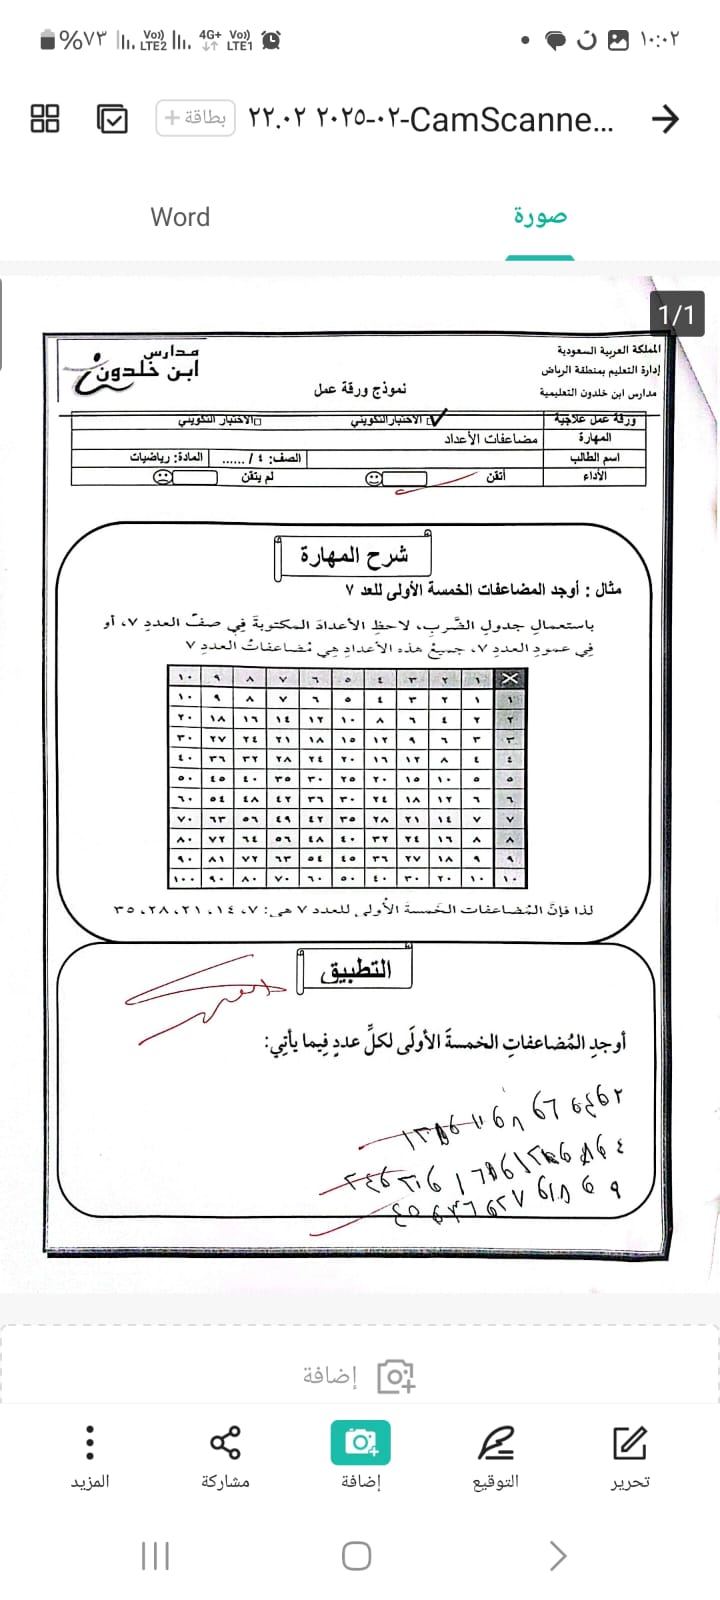 ١٠:٠٢
Vo)) LTE1 4G+ Vo)) LTE2 %٧٣
CamScanne...-٠٢-٢٠٢٥ ٢٢.٠٢
بطاقة +
صورة
Word
1/1
المملكة العربية السعودية
إدارة التعليم بمنطقة الرياض
مدارس ابن خلدون التعليمية
نموذج ورقة عمل
مدارس
ابن خلدون
ورقة عمل علاجية الاختبار التكويني الاختبار التكويني
المهارة مضاعفات الأعداد
اسم الطالب الصف: ٤ / ...... المادة: رياضيات
الأداء أتقن لم يتقن
شرح المهارة
مثال : أوجد المضاعفات الخمسة الأولى للعد ٧
باستعمالِ جدولِ الضَّربِ، لاحظِ الأعدادَ المكتوبةَ فِي صفّ العددِ ٧، أو
فِي عمودِ العددِ ٧، جميعُ هذه الأعدادِ هِي مُضاعفاتُ العددِ ٧
X ١ ٢ ٣ ٤ ٥ ٦ ٧ ٨ ٩ ١٠
١ ١ ٢ ٣ ٤ ٥ ٦ ٧ ٨ ٩ ١٠
٢ ٢ ٤ ٦ ٨ ١٠ ١٢ ١٤ ١٦ ١٨ ٢٠
٣ ٣ ٦ ٩ ١٢ ١٥ ١٨ ٢١ ٢٤ ٢٧ ٣٠
٤ ٤ ٨ ١٢ ١٦ ٢٠ ٢٤ ٢٨ ٣٢ ٣٦ ٤٠
٥ ٥ ١٠ ١٥ ٢٠ ٢٥ ٣٠ ٣٥ ٤٠ ٤٥ ٥٠
٦ ٦ ١٢ ١٨ ٢٤ ٣٠ ٣٦ ٤٢ ٤٨ ٥٤ ٦٠
٧ ٧ ١٤ ٢١ ٢٨ ٣٥ ٤٢ ٤٩ ٥٦ ٦٣ ٧٠
٨ ٨ ١٦ ٢٤ ٣٢ ٤٠ ٤٨ ٥٦ ٦٤ ٧٢ ٨٠
٩ ٩ ١٨ ٢٧ ٣٦ ٤٥ ٥٤ ٦٣ ٧٢ ٨١ ٩٠
١٠ ١٠ ٢٠ ٣٠ ٤٠ ٥٠ ٦٠ ٧٠ ٨٠ ٩٠ ١٠٠
لذا فإنَّ المُضاعفات الخَمسةَ الأُولى للعدد ٧ هي: ٧، ١٤، ٢١، ٢٨، ٣٥
التطبيق
أوجدِ المُضاعفاتِ الخمسةَ الأولَى لكلِّ عددٍ فِيما يأتِي:
إضافة
تحرير
التوقيع
إضافة
مشاركة
المزيد